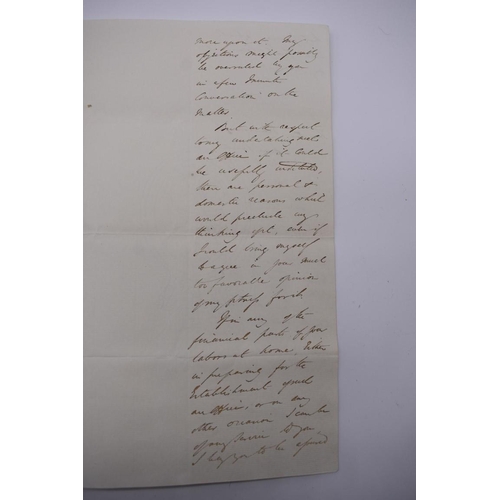 more upon it. My
objections might possibly
be overruled by you
in a few minutes
conversation on the
matter.
But with respect
to my undertaking such
an Office if it could
be usefully instituted,
there are personal &
domestic reasons which
would preclude my
thinking of it, even if
I could bring myself
to agree in your much
too favorable opinion
of my fitness for it.
If in any of the
financial parts of your
labors at home, either
in preparing for the
Establishment of such
an Office, or on any
other occasion I can be
of any service to you,
I beg you to be assured